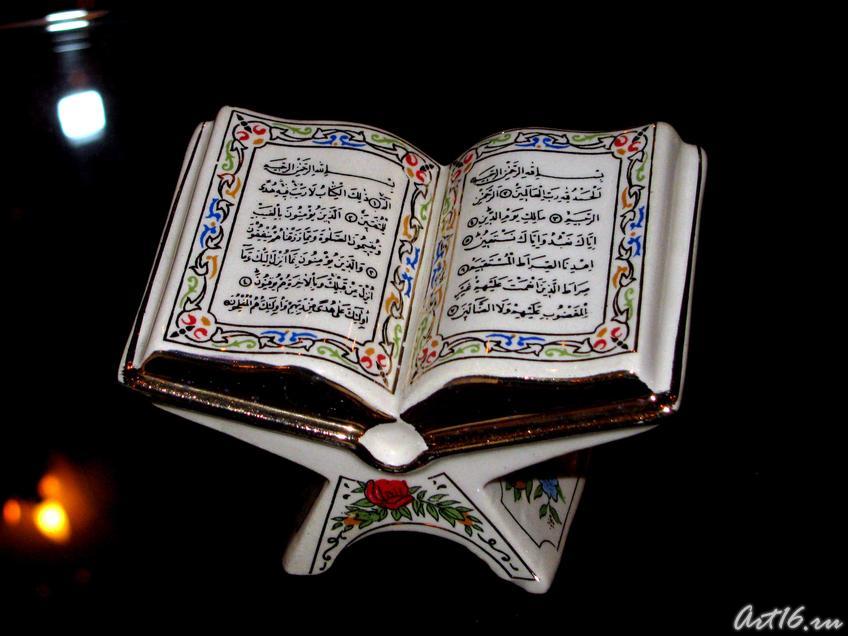 بسم الله الرحمن الرحيم
الحمد لله رب العالمين ١ الرحمن
الرحيم ٢ مالك يوم الدين ٣
اياك نعبد واياك نستعين ٤
اهدنا الصراط المستقيم ٥
صراط الذين انعمت عليهم غير
المغضوب عليهم ولا الضالين ٦
بسم الله الرحمن الرحيم
الم ١ ذلك الكتاب لا ريب فيه هدى
للمتقين ٢ الذين يؤمنون بالغيب
ويقيمون الصلوة ومما رزقناهم ينفقون
٣ والذين يؤمنون بما انزل اليك وما
انزل من قبلك وبالاخرة هم يوقنون ٤
اولئك على هدى من ربهم واولئك هم المفلحون
Art16.ru